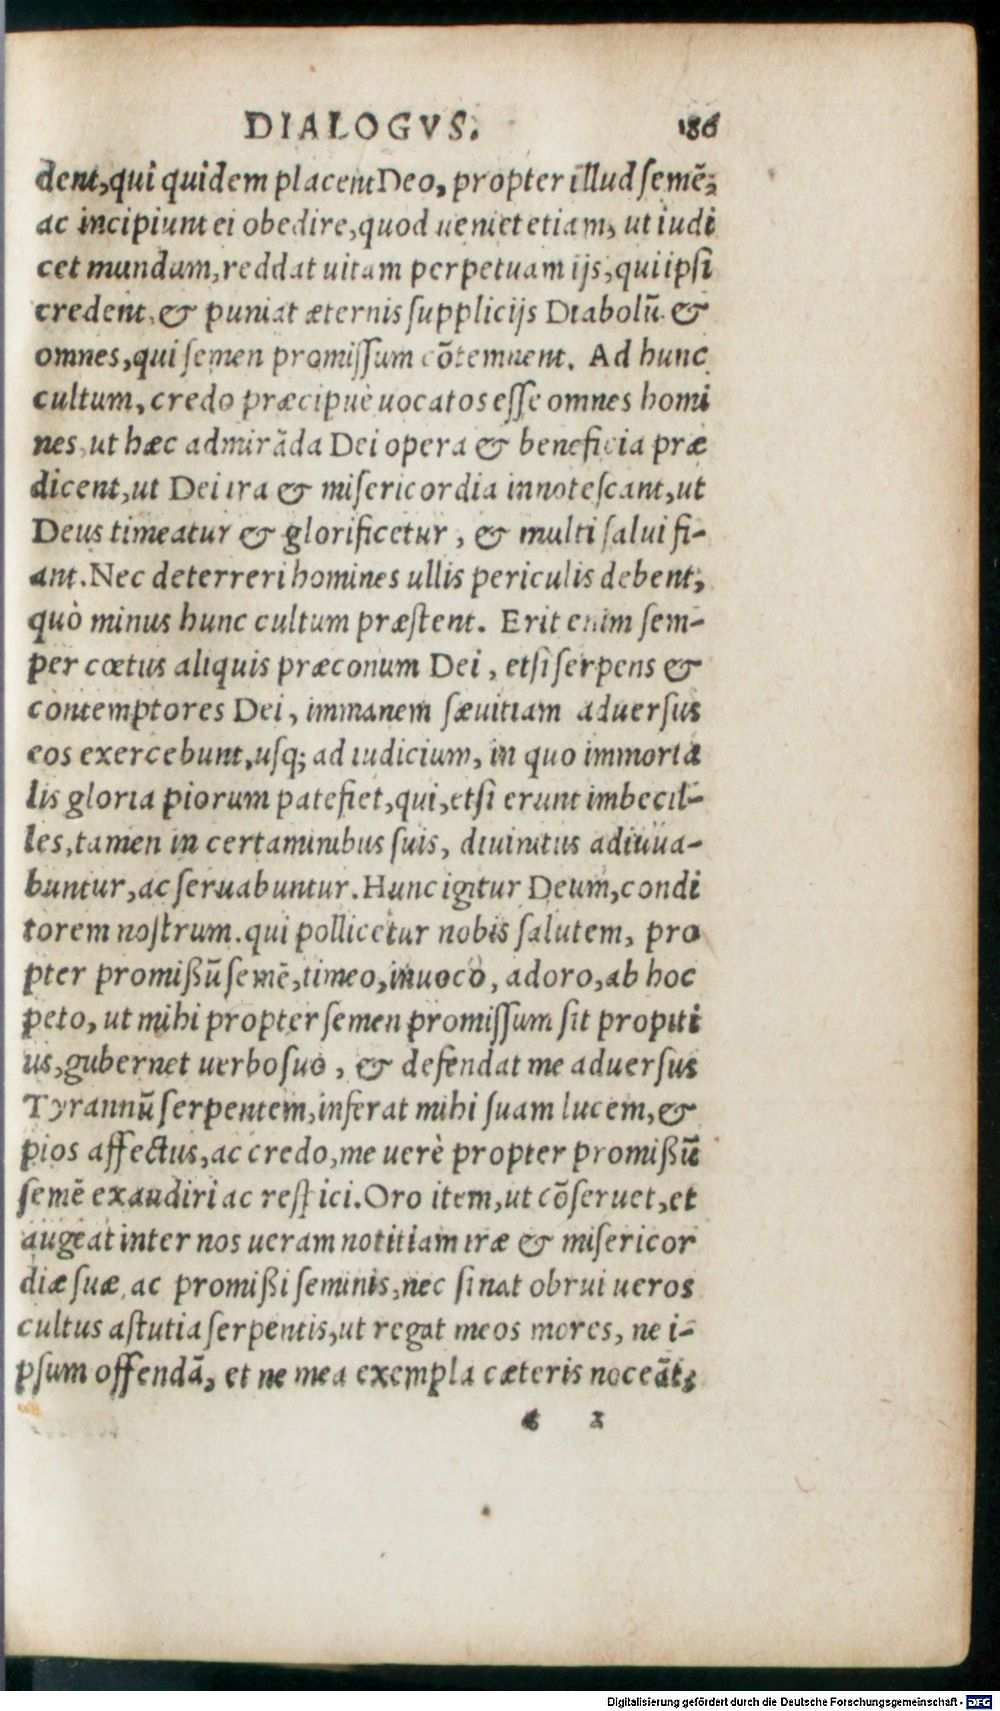 DIALOGVS. 186
dent, qui quidem placent Deo, propter illud semē,
ac incipiunt ei obedire, quod ueniet etiam, ut iudi
cet mundum, reddat uitam perpetuam ijs, qui ipsi
credent, & puniat æternis supplicijs Diabolū &
omnes, qui semen promissum cōtemnent. Ad hunc
cultum, credo præcipuè uocatos esse omnes homi
nes, ut hæc admirāda Dei opera & beneficia præ
dicent, ut Dei ira & misericordia innotescant, ut
Deus timeatur & glorificetur, & multi salui fi-
ant. Nec deterreri homines ullis periculis debent,
quò minus hunc cultum præstent. Erit enim sem-
per cœtus aliquis præconum Dei, etsi serpens &
contemptores Dei, immanem sæuitiam aduersus
eos exercebunt, usq; ad iudicium, in quo immorta
lis gloria piorum patefiet, qui, etsi erunt imbecil-
les, tamen in certaminibus suis, diuinitus adiuua-
buntur, ac seruabuntur. Hunc igitur Deum, condi
torem nostrum. qui pollicetur nobis salutem, pro
pter promißū semē, timeo, inuoco, adoro, ab hoc
peto, ut mihi propter semen promissum sit propiti
us, gubernet uerbo suo, & defendat me aduersus
Tyrannū serpentem, inserat mihi suam lucem, &
pios affectus, ac credo, me uerè propter promißū
semē exaudiri ac respici. Oro item, ut cōseruet, et
augeat inter nos ueram notitiam iræ & misericor
diæ suæ, ac promißi seminis, nec sinat obrui ueros
cultus astutia serpentis, ut regat meos mores, ne i-
psum offendā, et ne mea exempla cæteris noceāt,
2
Digitalisierung gefördert durch die Deutsche Forschungsgemeinschaft - DFG